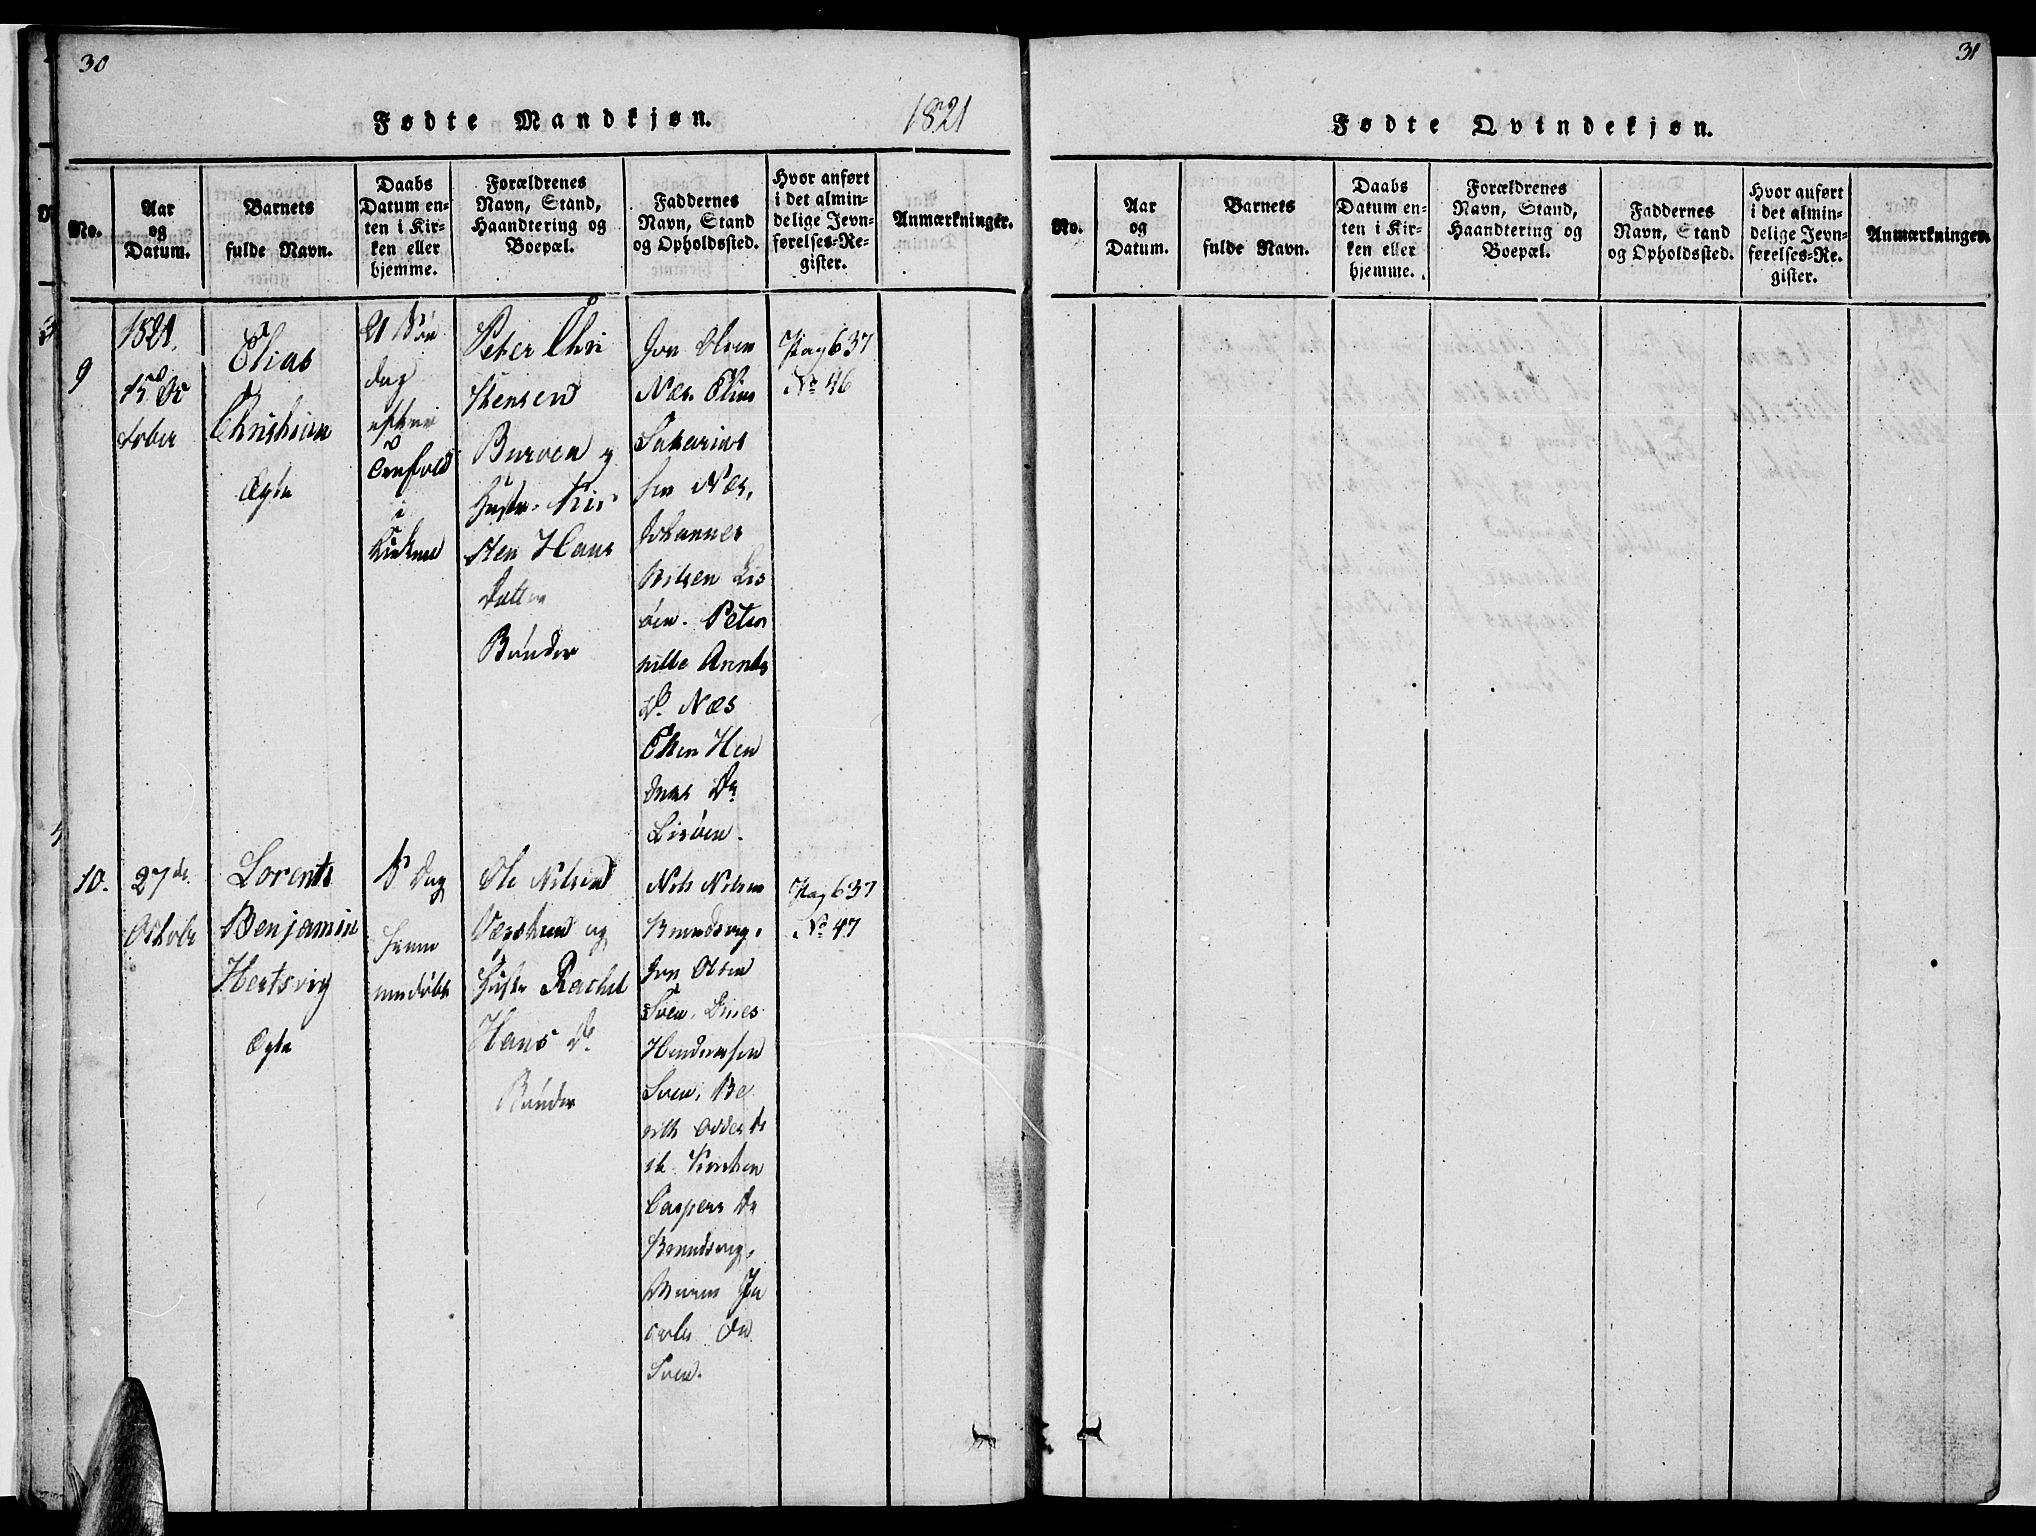 30
Fødte Mandkjøn.
1821
No.
Aar
og
Datum.
Barnets
fulde Navn.
Daabs
Datum en-
ten i Kir-
ken eller
hjemme.
Forældrenes
Navn, Stand,
Haandtering og
Boepæl.
Faddernes
Navn, Stand
og Opholdssted.
Hvor anført
i det almin-
delige Jevn-
førelses-Re-
gister.
Anmærkninger.
9
1821.
15de Oc
tober
Elias
Christian
Ægte
21 Søn
dag
efter
i
Kirken
Peter Chri
stensen
Burøen og
Hustr. Kir
sten Hans
Datter
Bønder
Jon Olsen
Næs. Elias
Sakarias
sen Næs,
Johannes
Nilsen Lis
øen. Peter
nille Arents
Dr. Næs
Ellen Hen
Dr.
Lisøen.
Pag 637
No 46
10.
27de
October
Lorents
Benjamin
Hertsvig
Ægte
Dag
hjemme
døbt
Ole Nilsen
og
Hustr Rachel
Hans Dr.
Bønder
Nels Nelsen
Brundsvig.
Jon Olsen
Sven. Dines
Hendricsen
Sven, Be
rith
Kirsten
Caspers Dr
Brundsvig.
Maren Ja
cobs Dr
Sven.
Pag 637
No 47
31
Fødte Qvindekjøn.
No.
Aar
og
Datum.
Barnets
fulde Navn.
Daabs
Datum en-
ten i Kir-
ken eller
hjemme.
Forældrenes
Navn, Stand,
Haandtering og
Boepæl.
Faddernes
Navn, Stand
og Opholdssted.
Hvor anført
i det almin-
delige Jevn-
førelses-Re-
gister.
Anmærkninger.